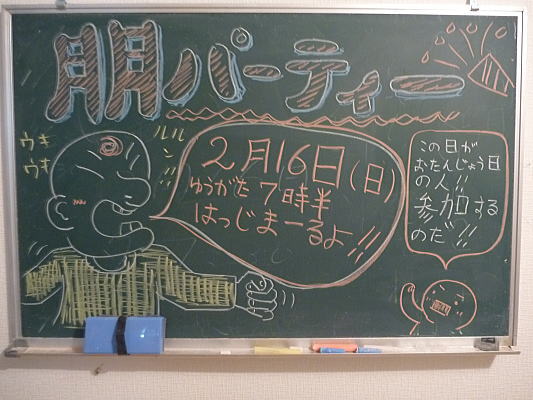 朋パーティー
ウキ
ウキ
ルルン!!
2月16日(日)
ゆうがた7時半
はっじまーるよ!!
この日が
おたんじょう日
の人!!
参加する
のだ!!